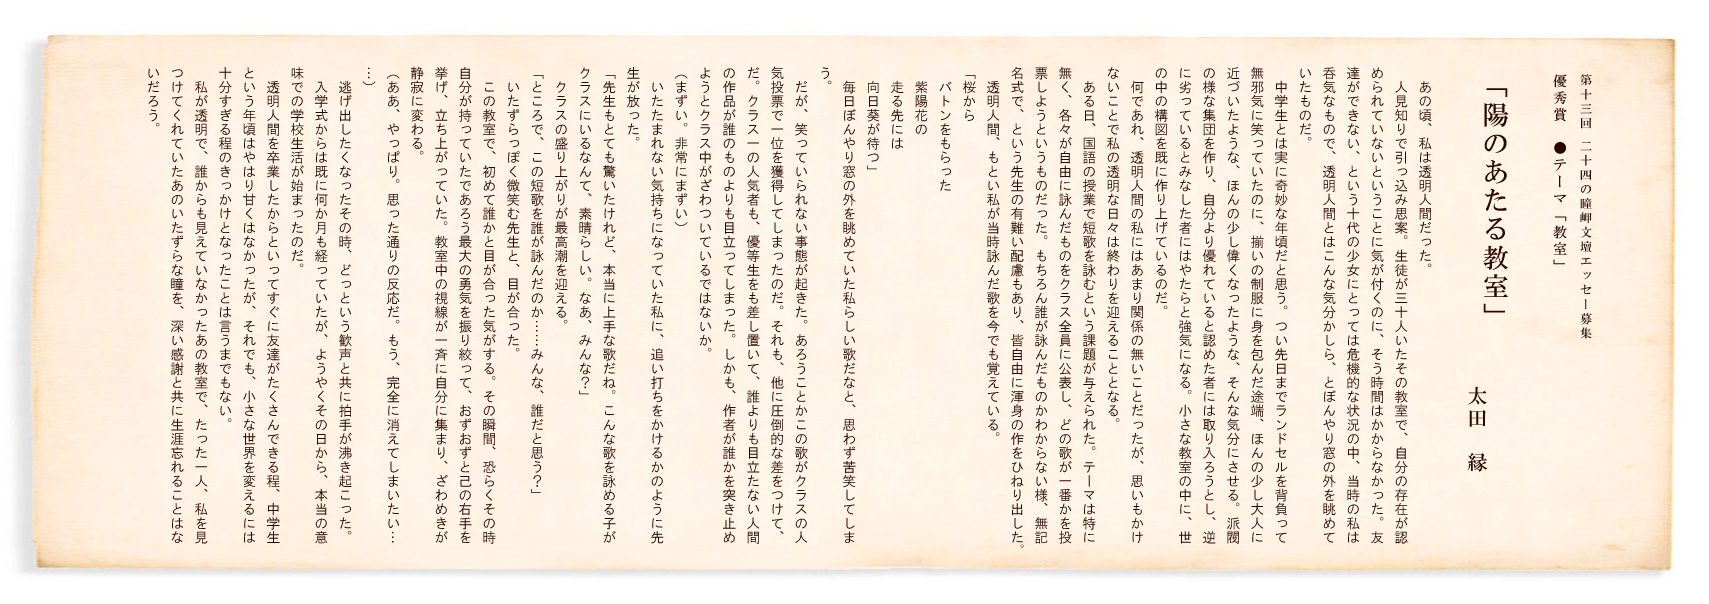 第十三回 二十四の瞳岬文壇エッセー募集
優秀賞 ●テーマ「教室」
「陽のあたる教室」 太田 縁
あの頃、私は透明人間だった。
人見知りで引っ込み思案。生徒が三十人いたその教室で、自分の存在が認
められていないということに気が付くのに、そう時間はかからなかった。友
達ができない、という十代の少女にとっては危機的な状況の中、当時の私は
呑気なもので、透明人間とはこんな気分かしら、とぼんやり窓の外を眺めて
いたものだ。
中学生とは実に奇妙な年頃だと思う。つい先日までランドセルを背負って
無邪気に笑っていたのに、揃いの制服に身を包んだ途端、ほんの少し大人に
近づいたような、ほんの少し偉くなったような、そんな気分にさせる。派閥
の様な集団を作り、自分より優れていると認めた者には取り入ろうとし、逆
に劣っているとみなした者にはやたらと強気になる。小さな教室の中に、世
の中の構図を既に作り上げているのだ。
何であれ、透明人間の私にはあまり関係の無いことだったが、思いもかけ
ないことで私の透明な日々は終わりを迎えることとなる。
ある日、国語の授業で短歌を詠むという課題が与えられた。テーマは特に
無く、各々が自由に詠んだものをクラス全員に公表し、どの歌が一番かを投
票しようというものだった。もちろん誰が詠んだものかわからない様、無記
名式で、という先生の有難い配慮もあり、皆自由に渾身の作をひねり出した。
透明人間、もとい私が当時詠んだ歌を今でも覚えている。
「桜から
バトンをもらった
紫陽花の
走る先には
向日葵が待つ」
毎日ぼんやり窓の外を眺めていた私らしい歌だなと、思わず苦笑してしま
う。
だが、笑っていられない事態が起きた。あろうことかこの歌がクラスの人
気投票で一位を獲得してしまったのだ。それも、他に圧倒的な差をつけて、
だ。クラス一の人気者も、優等生をも差し置いて、誰よりも目立たない人間
の作品が誰のものよりも目立ってしまった。しかも、作者が誰かを突き止め
ようとクラス中がざわついているではないか。
（まずい。非常にまずい）
いたたまれない気持ちになっていた私に、追い打ちをかけるかのように先
生が放った。
「先生もとても驚いたけれど、本当に上手な歌だね。こんな歌を詠める子が
クラスにいるなんて、素晴らしい。なあ、みんな？」
クラスの盛り上がりが最高潮を迎える。
「ところで、この短歌を誰が詠んだのか……みんな、誰だと思う？」
いたずらっぽく微笑む先生と、目が合った。
この教室で、初めて誰かと目が合った気がする。その瞬間、恐らくその時
自分が持っていたであろう最大の勇気を振り絞って、おずおずと己の右手を
挙げ、立ち上がっていた。教室中の視線が一斉に自分に集まり、ざわめきが
静寂に変わる。
（ああ、やっぱり。思った通りの反応だ。もう、完全に消えてしまいたい…
…）
逃げ出したくなったその時、どっという歓声と共に拍手が沸き起こった。
入学式からは既に何か月も経っていたが、ようやくその日から、本当の意
味での学校生活が始まったのだ。
透明人間を卒業したからといってすぐに友達がたくさんできる程、中学生
という年頃はやはり甘くはなかったが、それでも、小さな世界を変えるには
十分すぎる程のきっかけとなったことは言うまでもない。
私が透明で、誰からも見えていなかったあの教室で、たった一人、私を見
つけてくれていたあのいたずらな瞳を、深い感謝と共に生涯忘れることはな
いだろう。